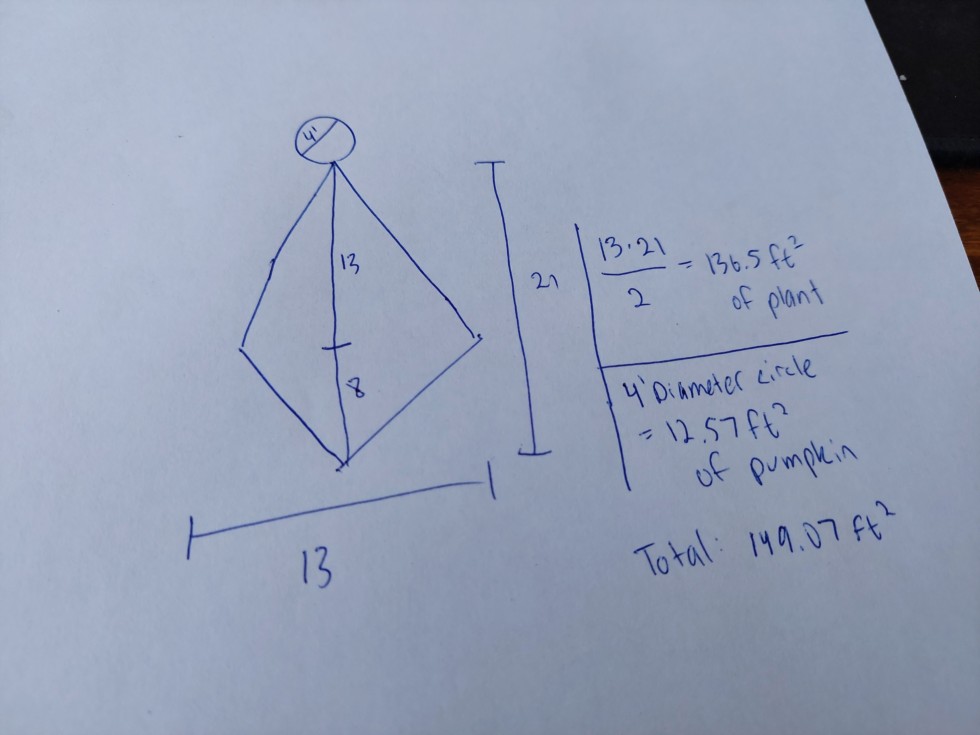 4'
13
8
21
13
13·21
2
= 136.5 ft²
of plant
4' Diameter circle
= 12.57 ft²
of pumpkin
Total: 149.07 ft²